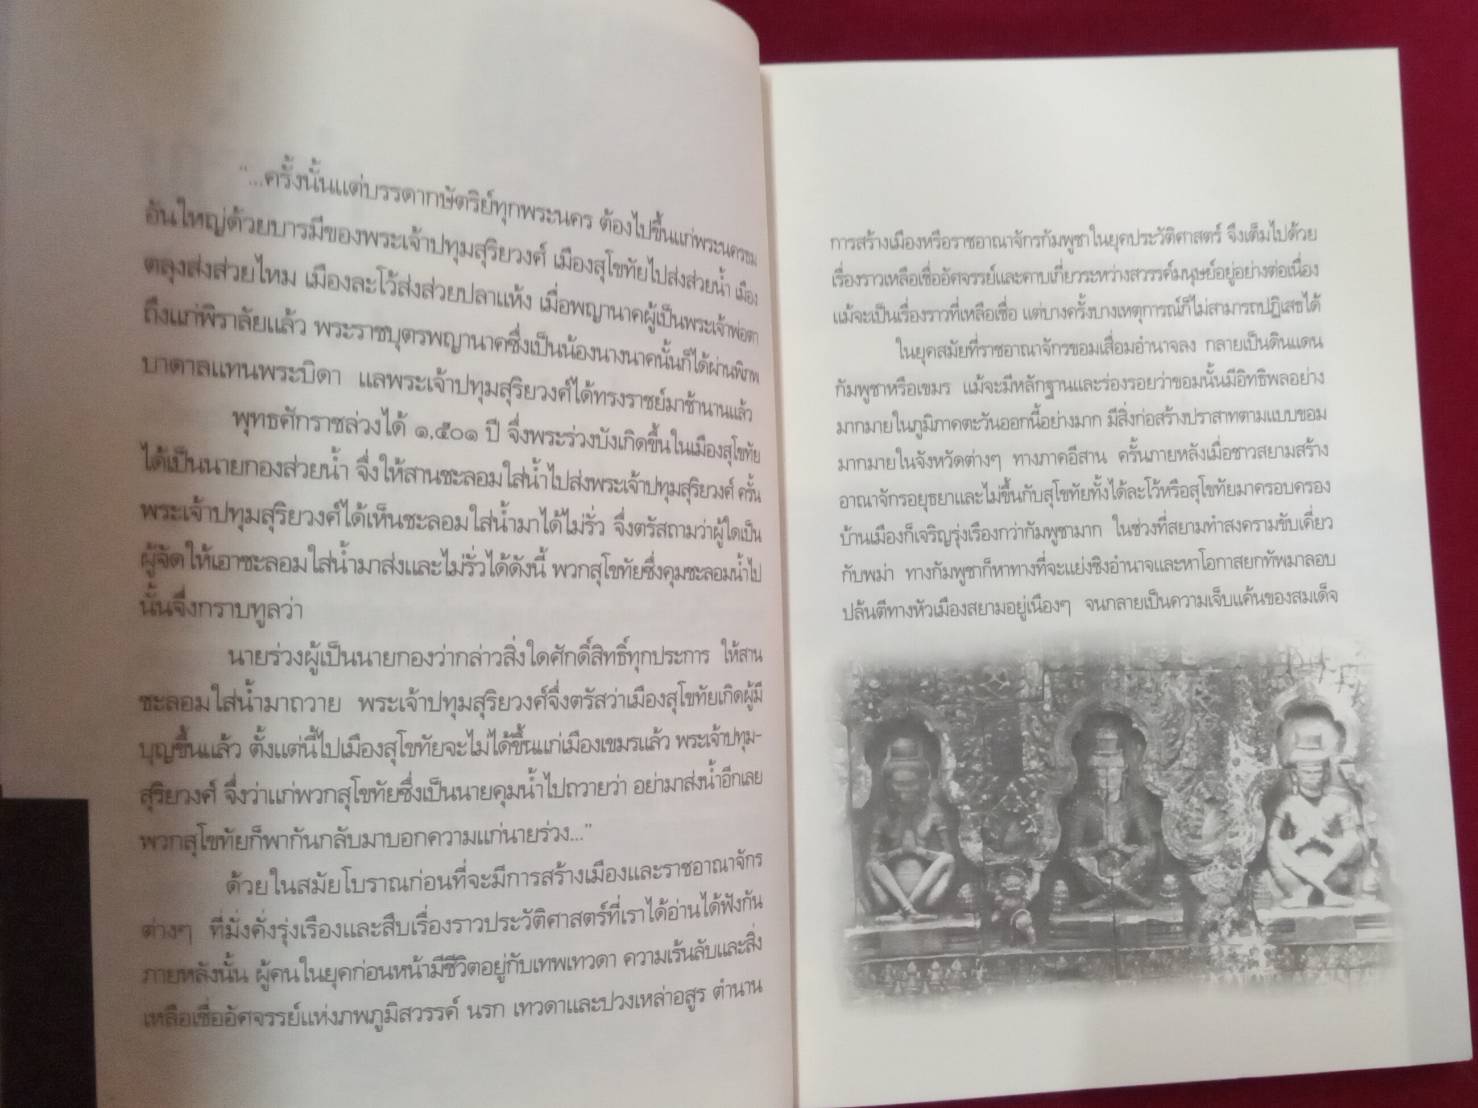 "...ครั้งนั้นแต่บรรดากษัตริย์ทุกพระนคร ต้องไปขึ้นแก่พระนครธม
อันใหญ่ด้วยบารมีของพระเจ้าปทุมสุริยวงศ์ เมืองสุโขทัยไปส่งส่วยน้ำ เมือง
ตลุงส่งส่วยไหม เมืองละโว้ส่งส่วยปลาแห้ง เมื่อพญานาคผู้เป็นพระเจ้าพ่อตา
ถึงแก่พิราลัยแล้ว พระราชบุตรพญานาคซึ่งเป็นน้องนางนาคนั้นก็ได้ผ่านพิภพ
บาดาลแทนพระบิดา แลพระเจ้าปทุมสุริยวงศ์ได้ทรงราชย์มาช้านานแล้ว
พุทธศักราชล่วงได้ ๑,๕๐๑ ปี จึ่งพระร่วงบังเกิดขึ้นในเมืองสุโขทัย
ได้เป็นนายกองส่วยน้ำ จึ่งให้สานชะลอมใส่น้ำไปส่งพระเจ้าปทุมสุริยวงศ์ ครั้น
พระเจ้าปทุมสุริยวงศ์ได้เห็นชะลอมใส่น้ำมาได้ไม่รั่ว จึ่งตรัสถามว่าผู้ใดเป็น
ผู้จัดให้เอาชะลอมใส่น้ำมาส่งและไม่รั่วได้ดังนี้ พวกสุโขทัยซึ่งคุมชะลอมน้ำไป
นั้นจึ่งกราบทูลว่า
นายร่วงผู้เป็นนายกองว่ากล่าวสิ่งใดศักดิ์สิทธิ์ทุกประการ ให้สาน
ชะลอมใส่น้ำมาถวาย พระเจ้าปทุมสุริยวงศ์จึ่งตรัสว่าเมืองสุโขทัยเกิดผู้มี
บุญขึ้นแล้ว ตั้งแต่นี้ไปเมืองสุโขทัยจะไม่ได้ขึ้นแก่เมืองเขมรแล้ว พระเจ้าปทุม-
สุริยวงศ์ จึ่งว่าแก่พวกสุโขทัยซึ่งเป็นนายคุมน้ำไปถวายว่า อย่ามาส่งน้ำอีกเลย
พวกสุโขทัยก็พากันกลับมาบอกความแก่นายร่วง..."
ด้วยในสมัยโบราณก่อนที่จะมีการสร้างเมืองและราชอาณาจักร
ต่างๆ ที่มั่งคั่งรุ่งเรืองและสืบเรื่องราวประวัติศาสตร์ที่เราได้อ่านได้ฟังกัน
ภายหลังนั้น ผู้คนในยุคก่อนหน้ามีชีวิตอยู่กับเทพเทวดา ความเร้นลับและสิ่ง
เหลือเชื่ออัศจรรย์แห่งภพภูมิสวรรค์ นรก เทวดาและปวงเหล่าอสูร ตำนาน
การสร้างเมืองหรือราชอาณาจักรกัมพูชาในยุคประวัติศาสตร์ จึงเต็มไปด้วย
เรื่องราวเหลือเชื่ออัศจรรย์และคาบเกี่ยวระหว่างสวรรค์มนุษย์อยู่อย่างต่อเนื่อง
แม้จะเป็นเรื่องราวที่เหลือเชื่อ แต่บางครั้งบางเหตุการณ์ก็ไม่สามารถปฏิเสธได้
ในยุคสมัยที่ราชอาณาจักรขอมเสื่อมอำนาจลง กลายเป็นดินแดน
กัมพูชาหรือเขมร แม้จะมีหลักฐานและร่องรอยว่าขอมนั้นมีอิทธิพลอย่าง
มากมายในภูมิภาคตะวันออกนี้อย่างมาก มีสิ่งก่อสร้างปราสาทตามแบบขอม
มากมายในจังหวัดต่างๆ ทางภาคอีสาน ครั้นภายหลังเมื่อชาวสยามสร้าง
อาณาจักรอยุธยาและไม่ขึ้นกับสุโขทัยทั้งได้ละโว้หรือสุโขทัยมาครอบครอง
บ้านเมืองก็เจริญรุ่งเรืองกว่ากัมพูชามาก ในช่วงที่สยามทำสงครามขับเคี่ยว
กับพม่า ทางกัมพูชาก็หาทางที่จะแย่งชิงอำนาจและหาโอกาสยกทัพมาลอบ
ปล้นตีทางหัวเมืองสยามอยู่เนืองๆ จนกลายเป็นความเจ็บแค้นของสมเด็จ